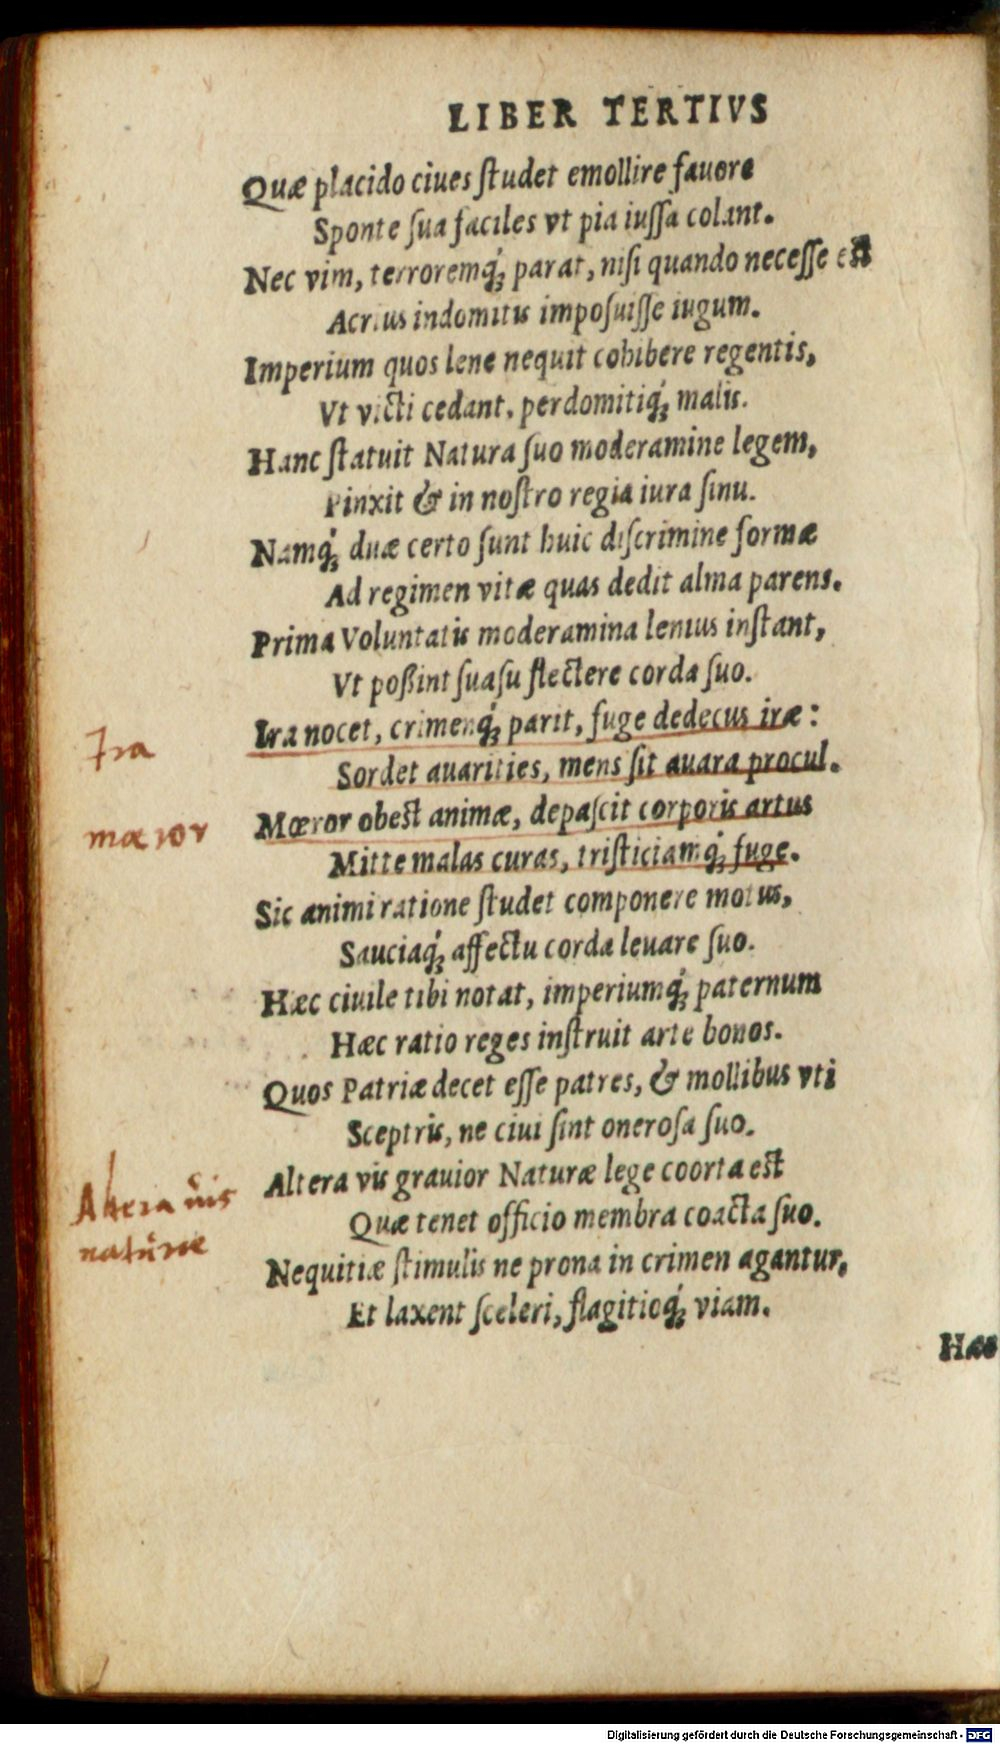 LIBER TERTIVS
Quæ placido ciues ſtudet emollire fauore
Sponte ſua faciles vt pia iuſſa colant.
Nec vim, terroremq́; parat, niſi quando neceſſe eſt
Acrius indomitis impoſuiſſe iugum.
Imperium quos lene nequit cohibere regentis,
Vt victi cedant, perdomitiq́; malis.
Hanc ſtatuit Natura ſuo moderamine legem,
Pinxit & in noſtro regia iura ſinu.
Namq́; duæ certo ſunt huic diſcrimine formæ
Ad regimen vitæ quas dedit alma parens.
Prima Voluntatis moderamina lenius inſtant,
Vt poßint ſuaſu flectere corda ſuo.
Ira nocet, crimenq́; parit, fuge dedecus iræ:
Ira
Sordet auarities, mens ſit auara procul.
Mœror obeſt animæ, depaſcit corporis artus
mœror
Mitte malas curas, triſticiamq́; fuge.
Sic animi ratione ſtudet componere motus,
Sauciaq́; affectu corda leuare ſuo.
Hæc ciuile tibi notat, imperiumq́; paternum
Hæc ratio reges inſtruit arte bonos.
Quos Patriæ decet eſſe patres, & mollibus vti
Sceptris, ne ciui ſint oneroſa ſuo.
Altera vis grauior Naturæ lege coorta eſt
Altera uis
Quæ tenet officio membra coacta ſuo.
naturæ
Nequitiæ ſtimulis ne prona in crimen agantur,
Et laxent ſceleri, flagitioq́; viam.
Hæc
Digitalisierung gefördert durch die Deutsche Forschungsgemeinschaft - DFG